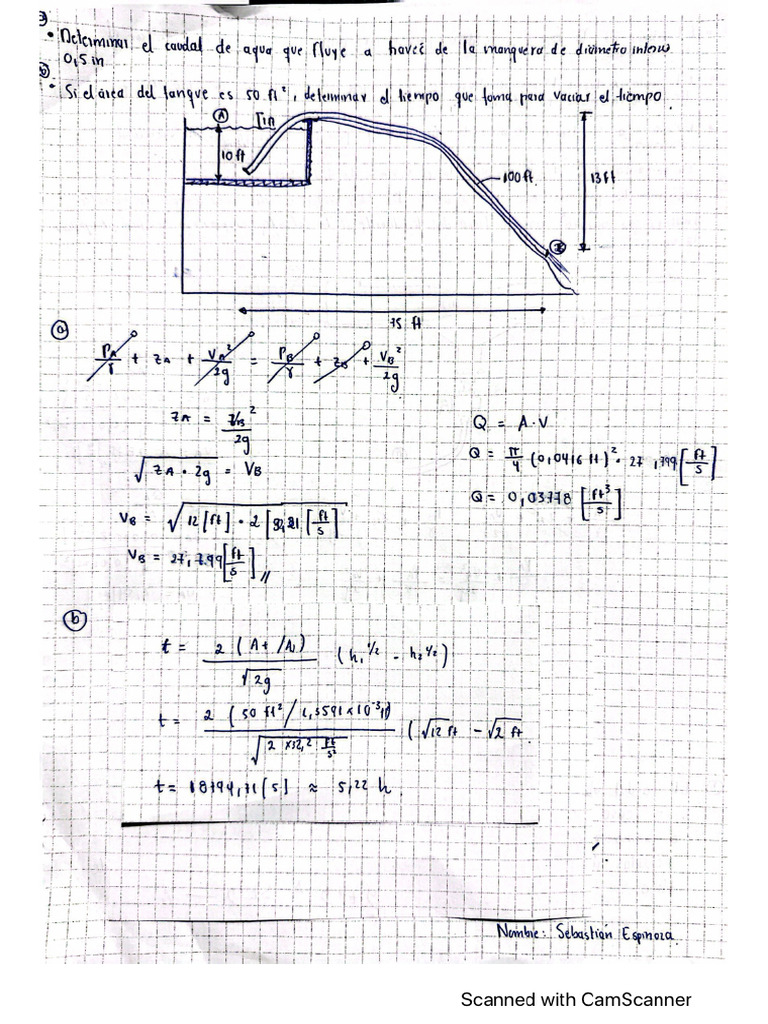 • Determinar el caudal de agua que fluye a havés de la manguera de diámetro
0,5 in
• Si el área del tanque es 50 ft², determinar el tiempo que toma para vaciar el tiempo.
Ⓐ 1 in
10 ft
100 ft
13 ft
Ⓑ
75 ft
ⓐ
P_A/γ + z_A + V_A²/2g = P_B/γ + z_B + V_B²/2g
z_A = V_B²/2g
√(z_A · 2g) = V_B
V_B = √(12 [ft] · 2 [32,21 [ft/s]
V_B = 27,799 [ft/s] //
Q = A·V
Q = π/4 (0,0416 ft)² · 27,799 [ft/s]
Q = 0,03778 [ft³/s]
ⓑ
t = 2 (A+ /A) / √2g (h₁^1/2 - h₂^1/2)
t = 2 (50 ft² / 1,3591 x 10⁻³) / √(2 x 32,2 ft/s²) (√12 ft - √2 ft
t = 18794,71 [s] ≈ 5,22 h.
Nombre: Sebastian Espinoza
Scanned with CamScanner